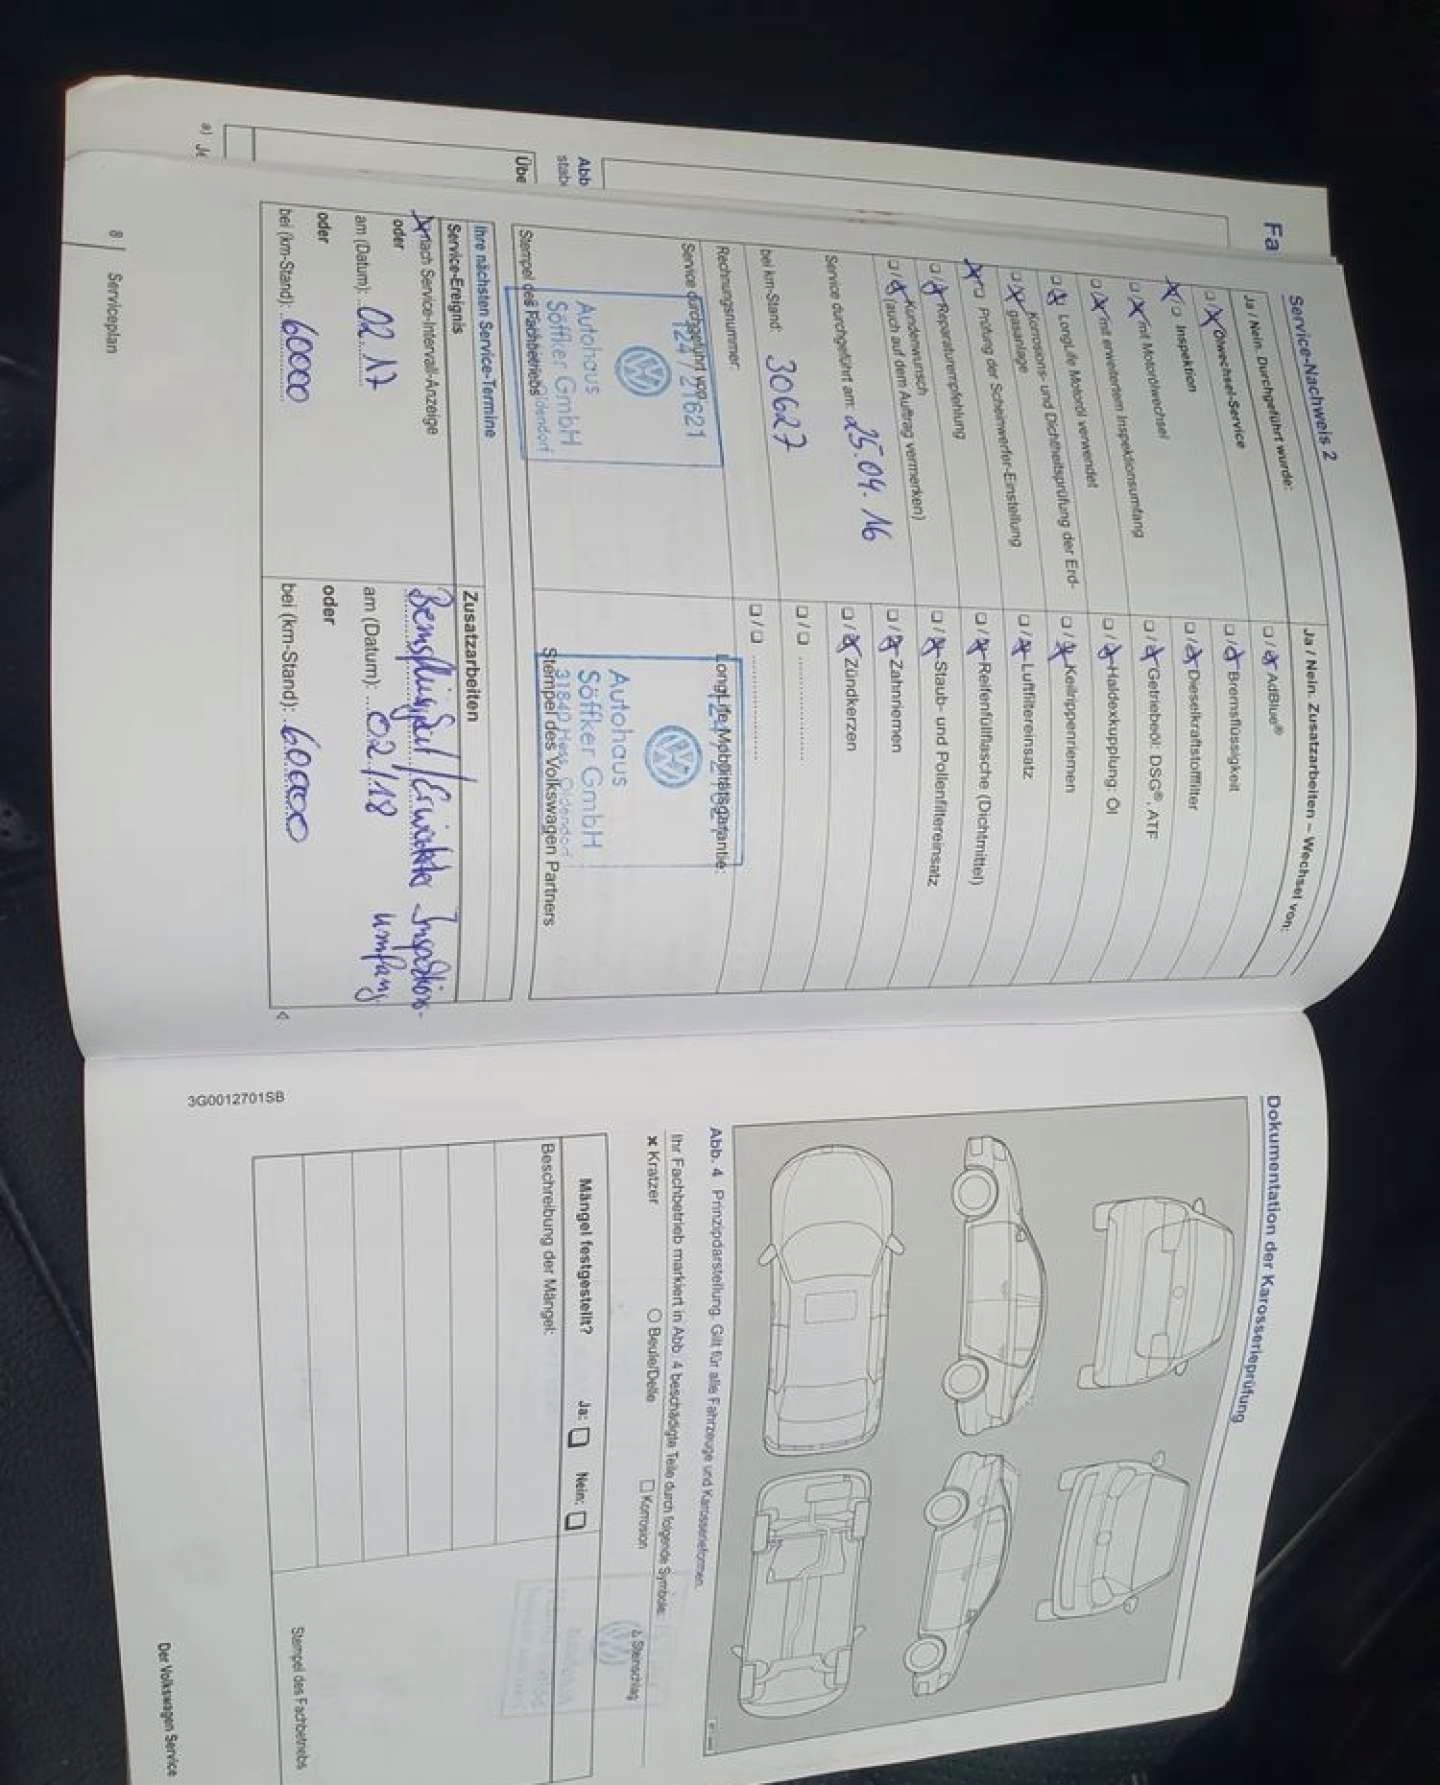 Fa
Abb
stab
Übe
a) Je
Service-Nachweis 2
Ja / Nein. Durchgeführt wurde:
❑ / ❑ Ölwechsel-Service
❑ / ❑ Inspektion
❑ / ❑ mit Motorölwechsel
❑ / ❑ mit erweitertem Inspektionsumfang
❑ / ❑ LongLife Motoröl verwendet
❑ / ❑ Korrosions- und Dichtheitsprüfung der Erd-
gasanlage
❑ / ❑ Prüfung der Scheinwerfer-Einstellung
❑ / ❑ Reparaturempfehlung
❑ / ❑ Kundenwunsch
(auch auf dem Auftrag vermerken)
Service durchgeführt am: 25.04.16
bei km-Stand: 30627
Rechnungsnummer:
Service durchgeführt von:
124 / 21621
Autohaus
Söffker GmbH
Oldendorf
Stempel des Fachbetriebs
Ja / Nein. Zusatzarbeiten – Wechsel von:
❑ / ❑ AdBlue®
❑ / ❑ Bremsflüssigkeit
❑ / ❑ Dieselkraftstofffilter
❑ / ❑ Getriebeöl: DSG®, ATF
❑ / ❑ Haldexkupplung: Öl
❑ / ❑ Keilrippenriemen
❑ / ❑ Luftfiltereinsatz
❑ / ❑ Reifenfüllflasche (Dichtmittel)
❑ / ❑ Staub- und Pollenfiltereinsatz
❑ / ❑ Zahnriemen
❑ / ❑ Zündkerzen
❑ / ❑ ....................
❑ / ❑ ....................
LongLife Mobilitätsgarantie:
Autohaus
Söffker GmbH
31840 Hess. Oldendorf
Stempel des Volkswagen Partners
Ihre nächsten Service-Termine
Service-Ereignis
nach Service-Intervall-Anzeige
oder
am (Datum): 02.17
oder
bei (km-Stand): 60000
Zusatzarbeiten
Bremsflüssigkeit / Erweiterter Inspektions-
umfang
am (Datum): 02/18
oder
bei (km-Stand): 60.000
8 | Serviceplan
Dokumentation der Karosserieprüfung
Abb. 4 Prinzipdarstellung. Gilt für alle Fahrzeuge und Karosserieformen.
Ihr Fachbetrieb markiert in Abb. 4 beschädigte Teile durch folgende Symbole:
✖ Kratzer ○ Beule/Delle ❑ Korrosion Δ Steinschlag
Mängel festgestellt? Ja: ❑ Nein: ❑
Beschreibung der Mängel:
Stempel des Fachbetriebs
3G0012701SB
Der Volkswagen Service